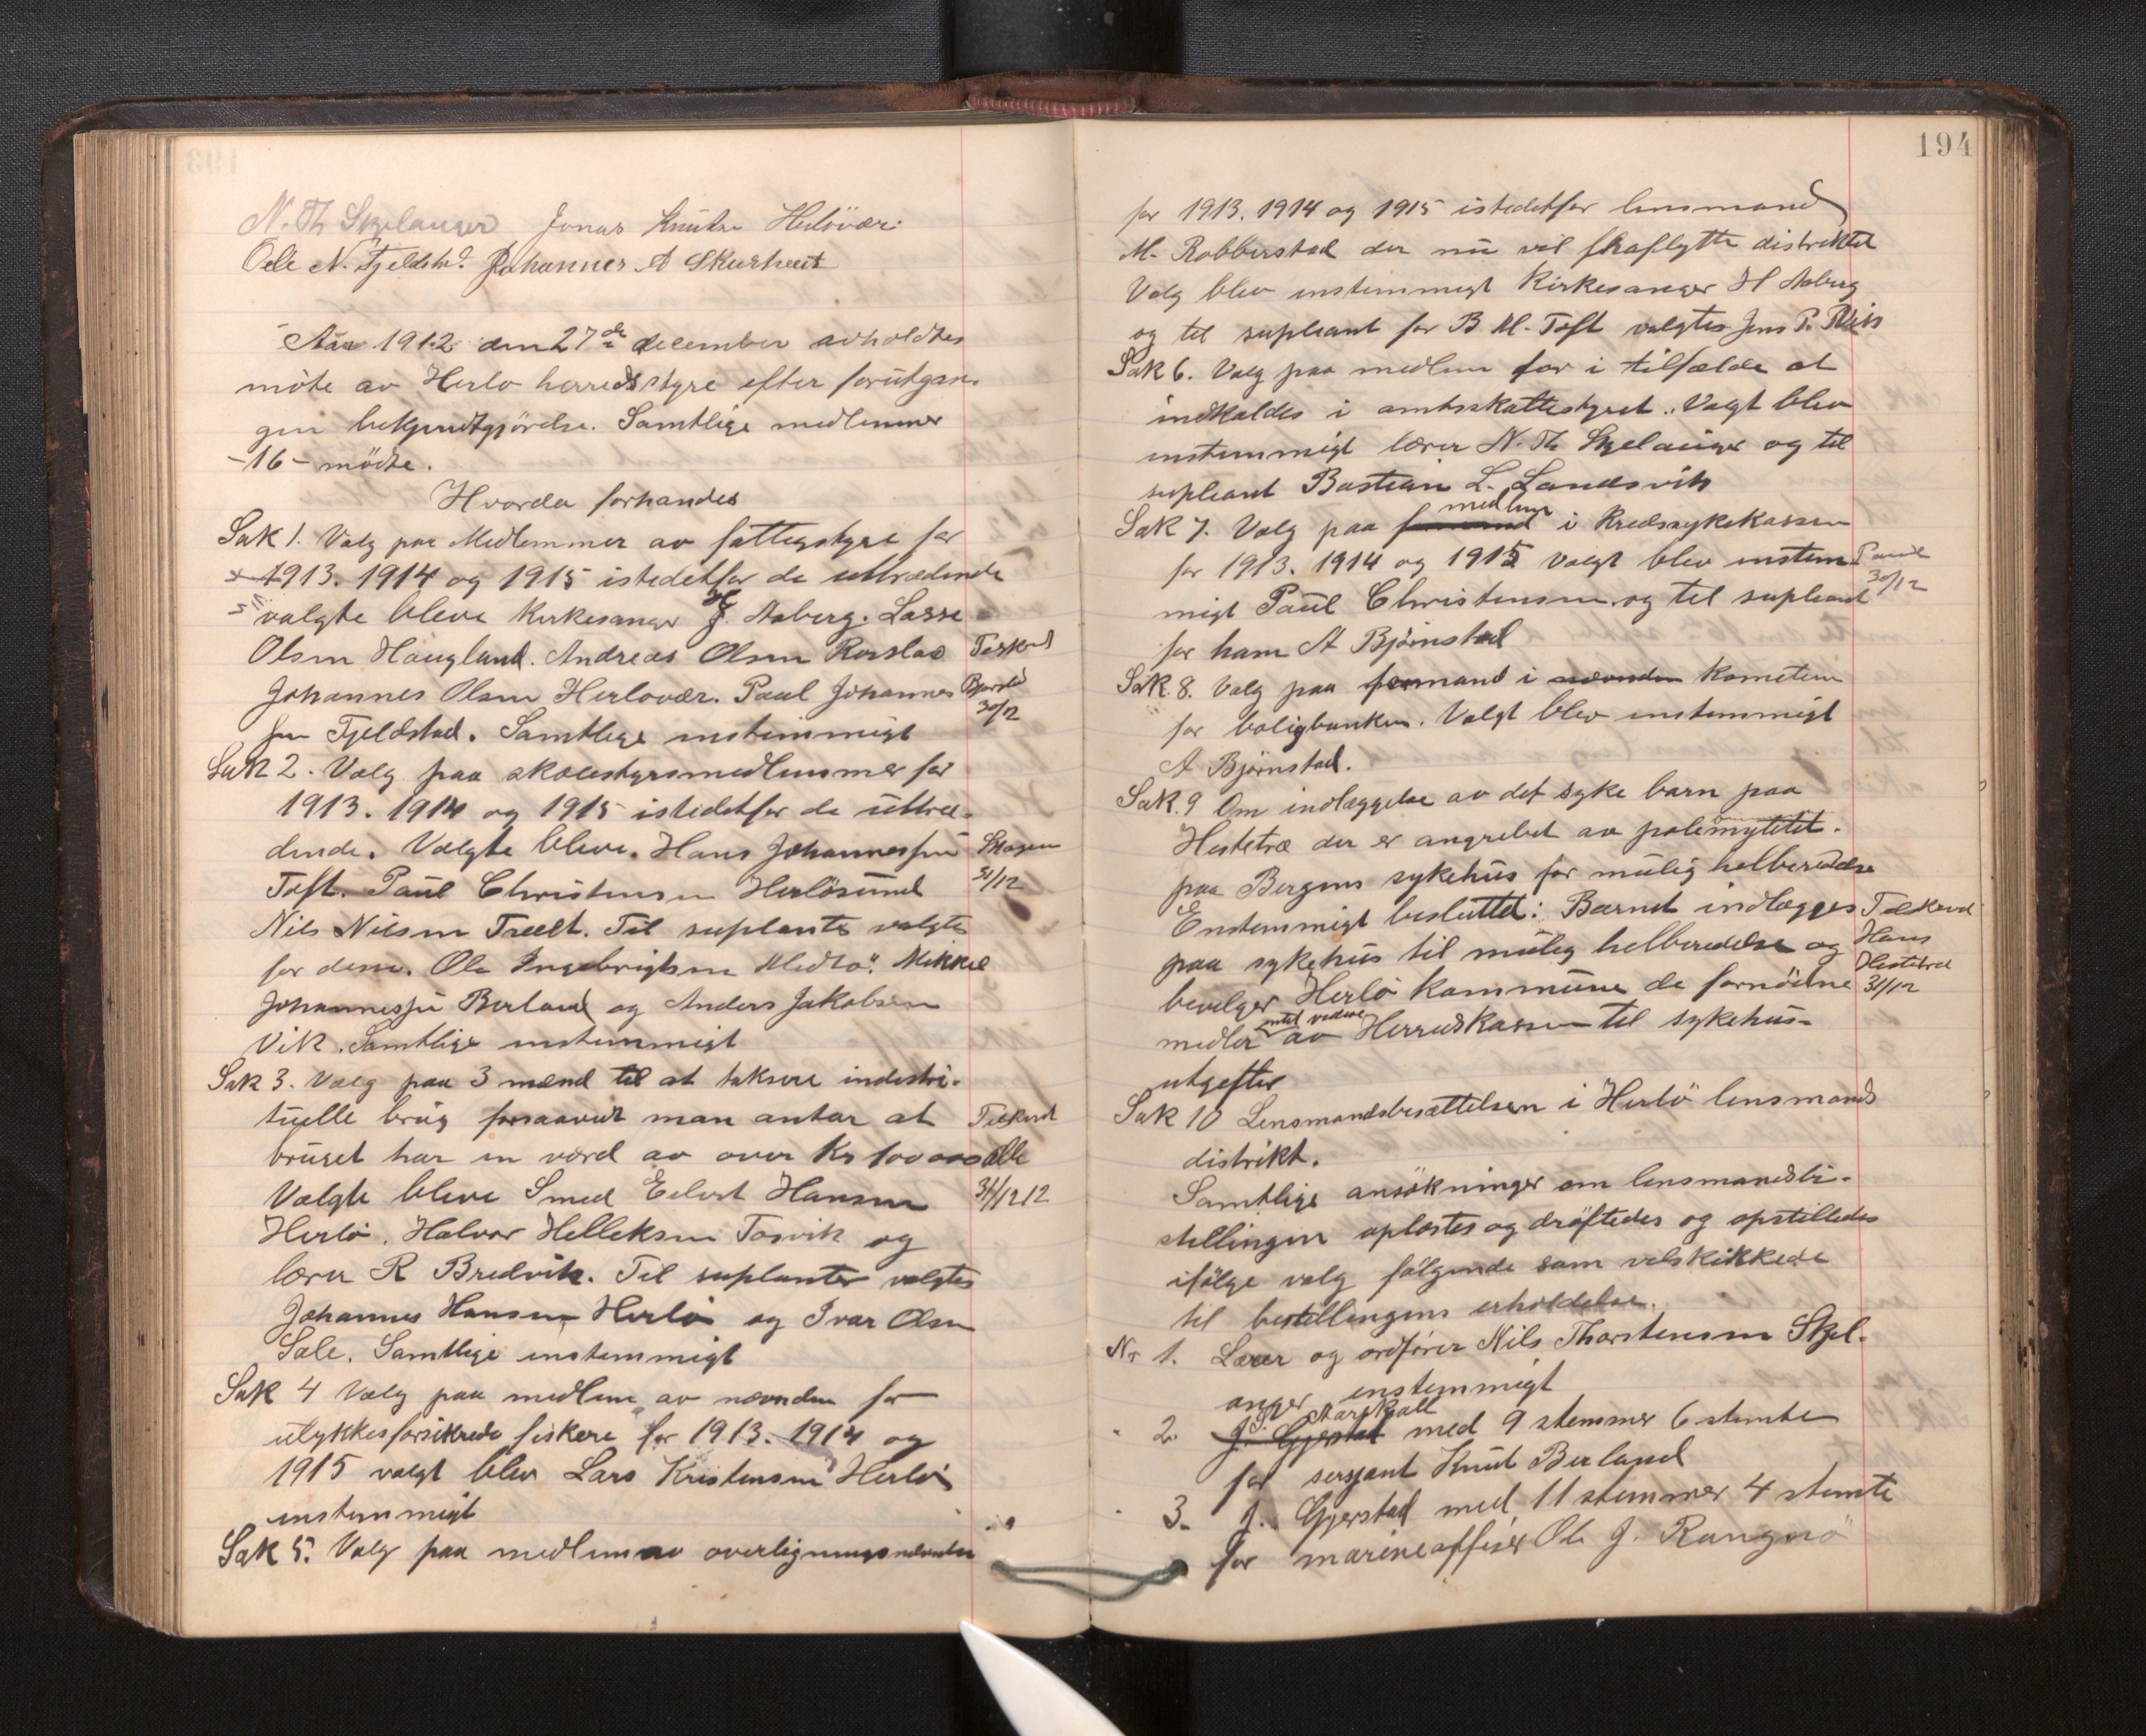 N. Th Skjelanger Jonas Knutsen Herlövær.
Ole N. Fjeldstad. Johannes A Skurtveit
Aar 1912 den 27de december avholdtes
möte av Herlo herredsstyre efter forutgan-
gen bekjendtgjörelse. Samtlige medlemmer
-16- mödte.
Hvorda forhandes
Sak 1. Valg paa Medlemmer av fattigstyre for
1913. 1914 og 1915 istedetfor de uttrædende
valgte bleve Kirkesanger H. Aaberg. Lasse
Olsen Haugland. Andreas Olsen Rosland
Johannes Olsen Herlovær. Paul Johannes
sen Fjeldstad. Samtlige enstemmigt
30/12
Sak 2. Valg paa skolestyremedlemmer for
1913. 1914 og 1915 istedetfor de uttræ-
dende. Valgte bleve. Hans Johannessen
Toft. Paul Christensen Herlösund
31/12
Nils Nilsen Træet. Til suplanter valgtes
for dem. Ole Ingebrigtsen Uledtö. Mikkel
Johannessen Berland og Anders Jakobsen
Vik. Samtlige enstemmigt
Sak 3. Valg paa 3 mænd til at taksere indestri-
tuelle brug forsaavidt man antar at
Tilkend
bruget har en værd av over Kr 100000
alle
Valgte bleve Smed Eilert Hansen
31/12 12
Herlö. Halvor Helleksen Tosvik og
lærer R Bredvik. Til suplanter valgtes
Johannes Hansen Herlö og Ivar Olsen
Sale. Samtlige enstemmigt
Sak 4 Valg paa medlem av nævnden for
ulykkesforsikrede fiskere for 1913. 1914 og
1915 valgt blev Lars Kristensen Herlö
enstemmigt
Sak 5. Valg paa medlem av overligningsnævnden
194
for 1913. 1914 og 1915 istedetfor lensmand
M. Robberstad der nu vil fraflytte distriktet
Valg blev enstemmigt Kirkesanger H Aaberg
og til supleant for B M. Toft valgtes Jens P.
Sak 6. Valg paa medlem for i tilfælde at
indkaldes i amtsskattestyret. Valgt blev
enstemmigt lærer N. Th Skjelanger og til
supleant Bastian L. Landsvik
Sak 7. Valg paa formand medlem i Kredssykekassen
for 1913. 1914 og 1915 valgt blev enstem
migt Paul Christensen og til supleant
Paul
30/12
for ham A Björnstad
Sak. 8. Valg paa formand i nævnden Kometeen
for boligbanken. Valgt blev enstemmigt
A Bjørnstad.
Sak. 9 Om indlæggelse av det syke barn paa
Hestetræ der er angrebet av poleomytitet.
paa Bergens sykehus for mulig helberedelse
Enstemmigt besluttet: Barnet indlægges
Tilkend
paa sykehus til mulig helberedelse og
Hans
Hestetræ
bevilger Herlö Kommune de fornödne
31/12
medler intil vedere av Herredskassen til sykehus-
utgefter
Sak 10 Lensmandsbesættelsen i Herlö lensmands
distrikt.
Samtlige ansökninger om lensmandsbe-
stillingen oplæstes og dröftedes og opstilledes
ifölge valg fölgende som velskikkede
til bestillingens erholdelse.
Nr 1. Lærer og ordförer Nils Thorstensen Skjel-
anger enstemmigt
" 2. J. Gjerstad S. Aarskall med 9 stemmer 6 stemte
for sersjant Knut Berland
" 3. J. Gjerstad med 11 stemmer 4 stemte
for marineoffiser Ole J. Rangnö